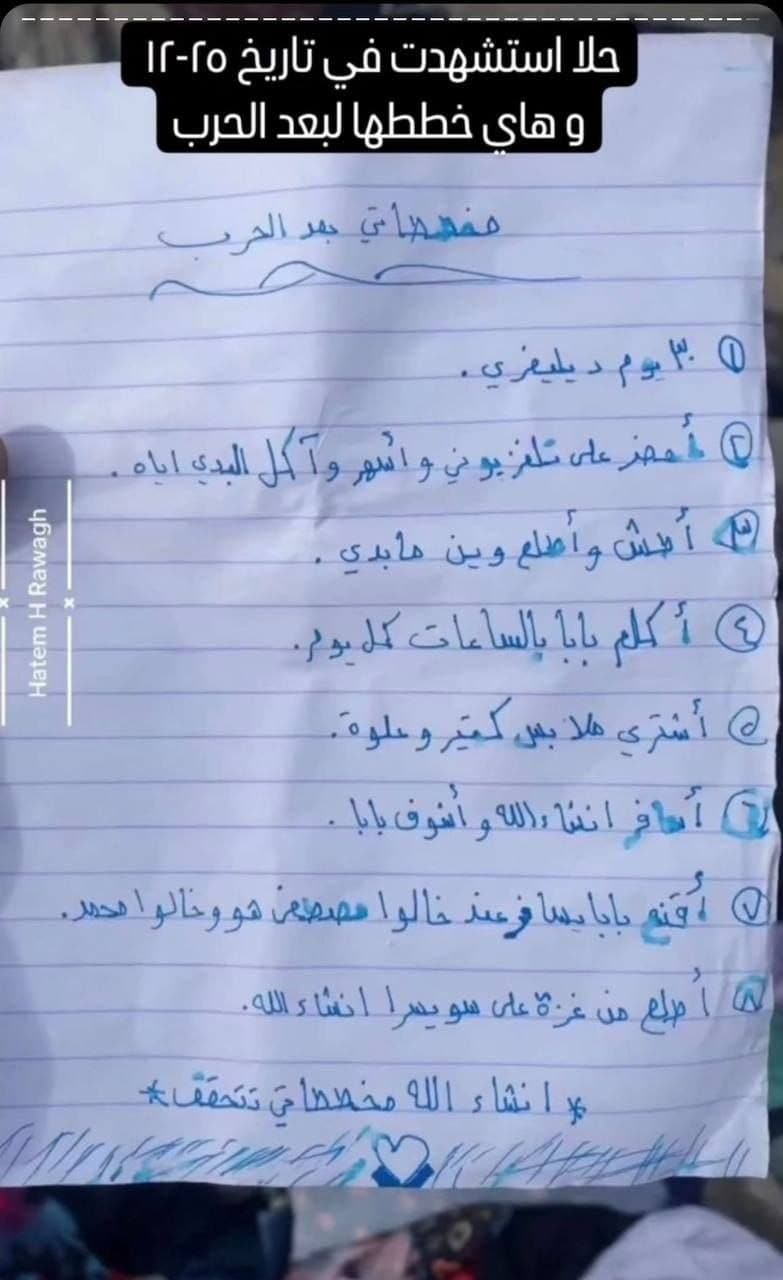 حلا استشهدت في تاريخ ٢٥-١٢
و هاي خططها لبعد الحرب
مخططاتي بعد الحرب
١ ٣٠ يوم ديليفري.
٢ أحضر على تلفزيوني وأسهر وآكل البدي اياه.
٣ أطش وأطلع وين مابدي.
٤ أكلم بابا بالساعات كل يوم.
٥ أشتري ملابس كتير وحلوة.
٦ أسافر انشاءالله وأشوف بابا.
٧ أقنع بابا يسافر عند خالوا مصطفى هو وخالوا محمد.
٨ أطلع من غزة على سويسرا انشاءالله.
* انشاء الله مخططاتي تتحقق *
Hatem H Rawagh